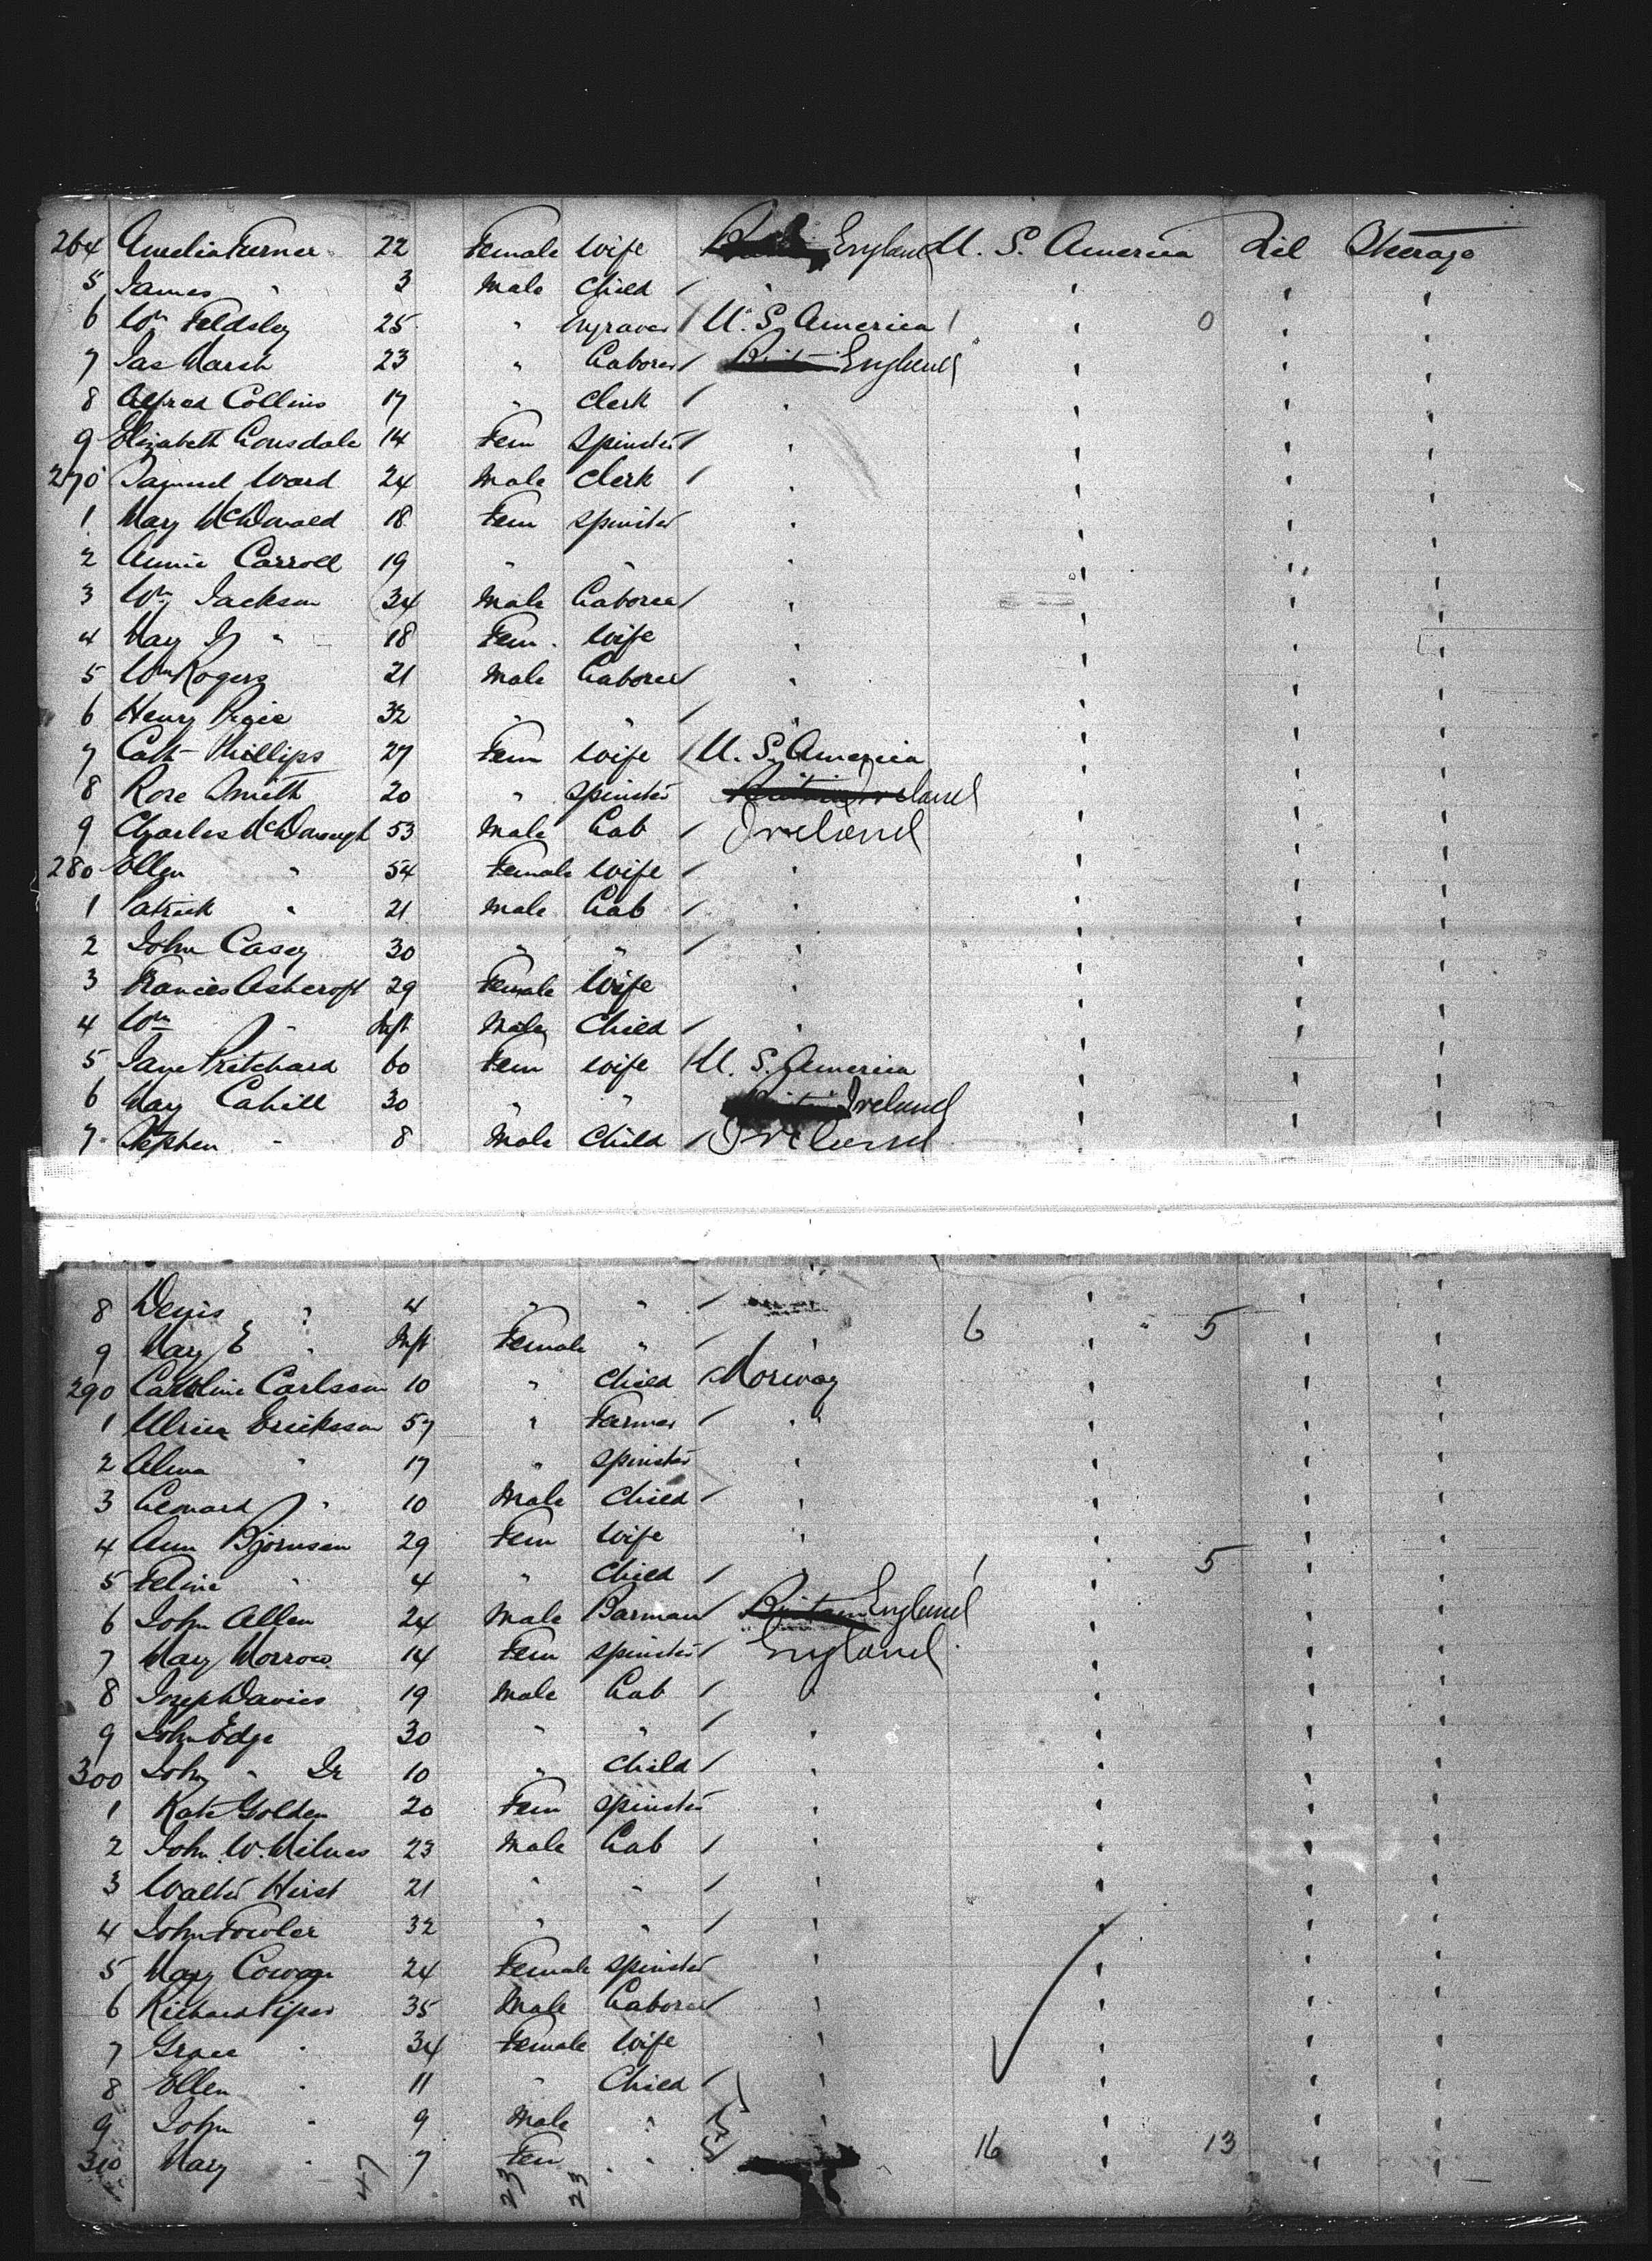 264 Amelia Turner 22 Female Wife England U. S. America Nil Steerage
5 James " 3 Male Child / " " " "
6 Wm Feldsley 25 " Engraver / U. S. America / " 0 " "
7 Jas Marsh 23 " Laborer / Britain England " " "
8 Alfred Collins 17 " Clerk / " " " "
9 Elizabeth Lonsdale 14 Fem Spinster / " " " "
270 Samuel Ward 24 Male Clerk / " " " "
1 Mary McDonald 18 Fem Spinster " " " "
2 Annie Carroll 19 " " " " " "
3 Wm Jackson 34 Male Laborer / " " " "
4 Mary J " 18 Fem. Wife " " " "
5 Wm Rogers 21 Male Laborer / " " " "
6 Henry 32 " " / " " " "
7 Cath Phillips 27 Fem Wife / U. S. America " " "
8 Rose Smith 20 " Spinster Britain Ireland " " "
9 Charles McDonough 53 Male Lab / Ireland " " "
280 Ellen " 54 Female Wife / " " " "
1 Patrick " 21 Male Lab / " " " "
2 John Casey 30 " " / " " " "
3 Frances Ashcroft 29 Female Wife " " " "
4 Wm " Inft Male Child / " " " "
5 Jane Pritchard 60 Fem Wife / U. S. America " " "
6 Mary Cahill 30 " " Britain Ireland " " "
7 Stephen " 8 Male Child / Ireland " " "
8 Denis " 4 " " / " " "
9 Mary E " Inft Female " / " 6 " 5 " "
290 Caroline Carlsson 10 " Child / Norway " " "
1 Ulrica Ericksson 57 " Farmer / " " " "
2 Alma " 17 " Spinster " " " "
3 Leonard " 10 Male Child / " " " "
4 Ann Bjornsen 29 Fem Wife " " " "
5 Feline " 4 " Child / " / " 5 " "
6 John Allen 24 Male Barman / Britain England " " "
7 Mary Morrow 14 Fem Spinster / England " " "
8 Joseph Davies 19 Male Lab / " " " "
9 John Edge 30 " " / " " " "
300 John " Jr 10 " Child / " " " "
1 Kate Golden 20 Fem Spinster " " " "
2 John W. Milnes 23 Male Lab / " " " "
3 Walter Hirst 21 " " / " " " "
4 John Fowler 32 " " / " " " "
5 Mary Cowan 24 Female Spinster " " " "
6 Richard Piper 35 Male Laborer / " " " "
7 Grace " 34 Female Wife " " " "
8 Ellen " 11 " Child / " " " "
9 John " 9 Male " / " " " "
310 Mary " 7 Fem " " / 16 " 13 " "
47 23 23